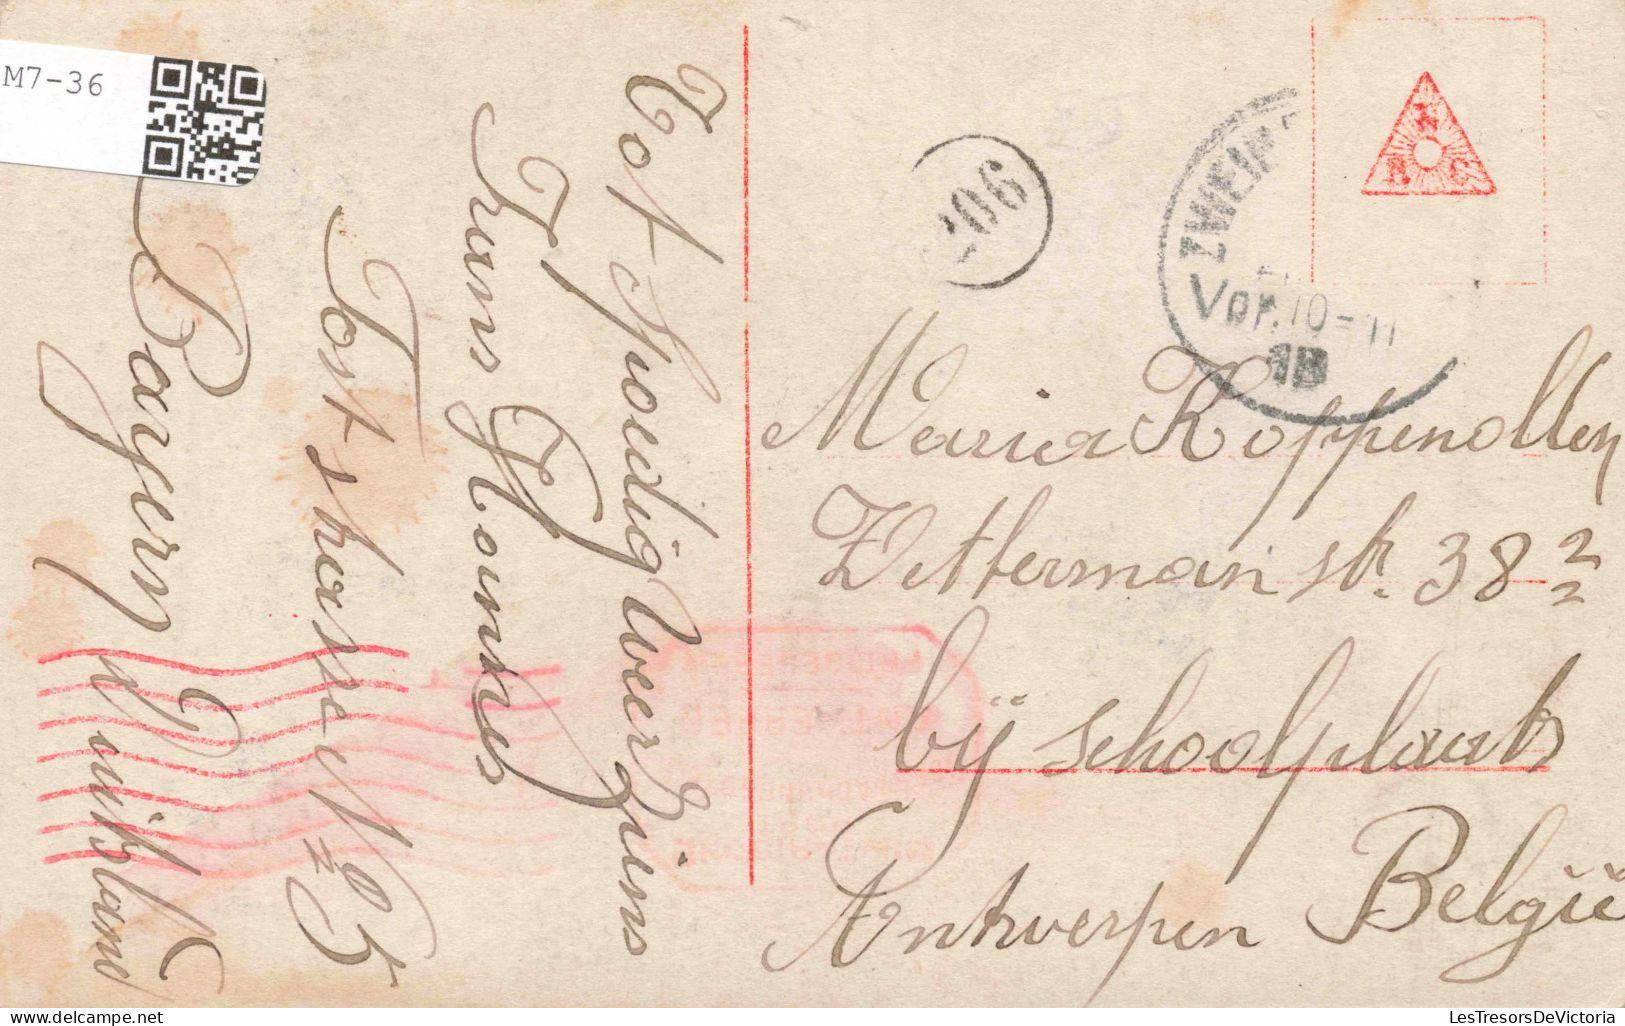 M7-36
Tot spoedig Weerziens
Frans Hounkes
Post strasse No 25
Bayern Duitsland
206
ZWEIB
Vor. 10-11
18
N
R C
Maria Koppenollen
Zetterman str. 38 2/2
bij schoolplaats
Antwerpen België
delcampe.net
LesTresorsDeVictoria